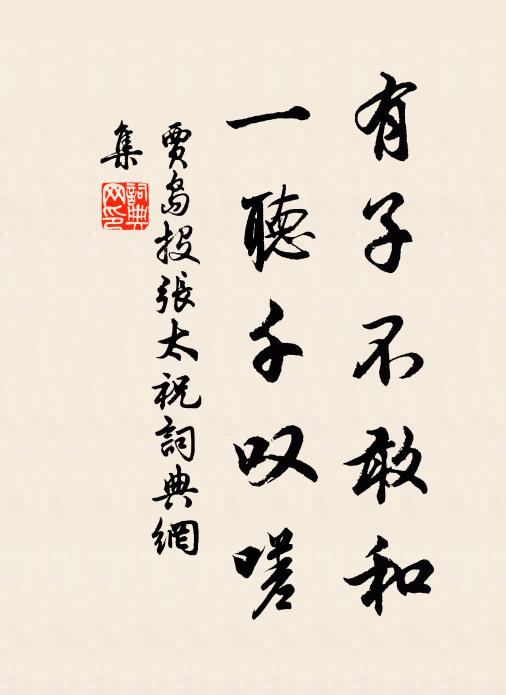 有子不敢和
一聽千叹嗟
賈島投張太祝詞典網
集
詞典
网印